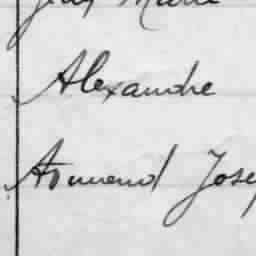 Jean Marie
Alexandre
Armand Josep